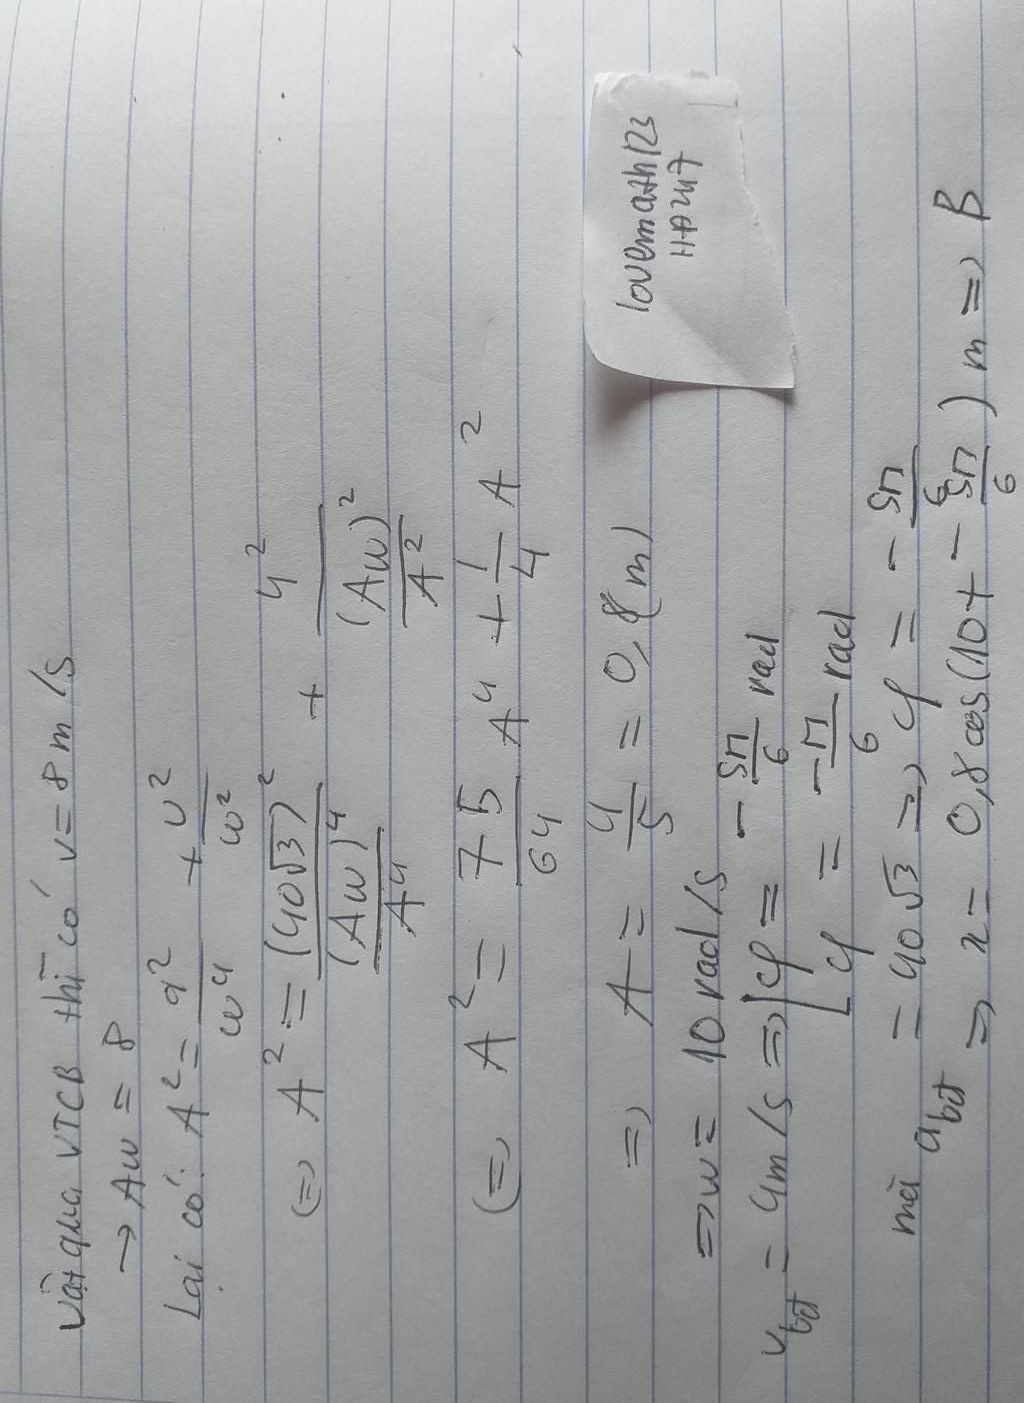 Vật qua VTCB thì có v = 8 m/s
→ Aω = 8
Lại có: A² = a²/ω⁴ + v²/ω²
(=) A² = (40√3)²/((Aω)⁴/A⁴) + 4²/((Aω)²/A²)
(=) A² = 75/64 A⁴ + 1/4 A²
=) A = 4/5 = 0,8(m)
=) ω = 10 rad/s
v_bđ = 4m/s =) [φ = -5π/6 rad
[φ = -π/6 rad
mà a_bđ = 40√3 =) φ = -5π/6
=) x = 0,8 cos(10t - 5π/6) m =) B
lovemath123
HP2417